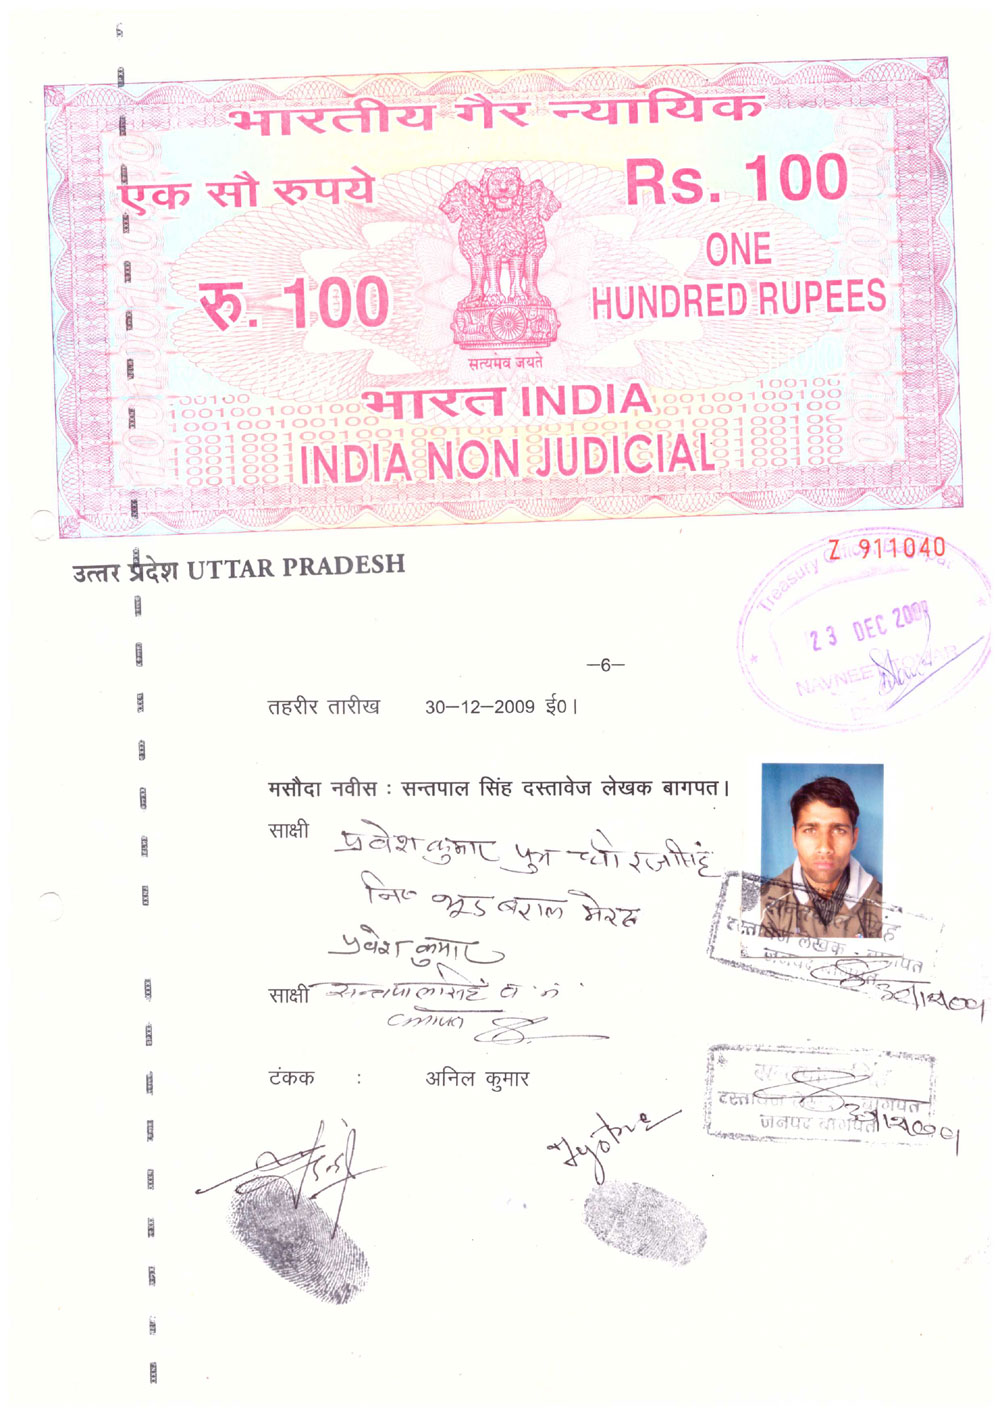 6
भारतीय गैर न्यायिक
एक सौ रुपये
Rs. 100
रु. 100
ONE
HUNDRED RUPEES
सत्यमेव जयते
भारत INDIA
INDIA NON JUDICIAL
Z 911040
उत्तर प्रदेश UTTAR PRADESH
Treasury
23 DEC 2009
NAVNEE
–6–
तहरीर तारीख 30–12–2009 ई0।
मसौदा नवीस : सन्तपाल सिंह दस्तावेज लेखक बागपत।
साक्षी प्रवेश कुमार पुत्र
मेरठ
प्रवेश कुमार
साक्षी सन्तपाल सिंह
बागपत
सन्तपाल सिंह
दस्तावेज लेखक - बागपत
जनपद बागपत
टंकक : अनिल कुमार
दस्तावेज बागपत
जनपद बागपत